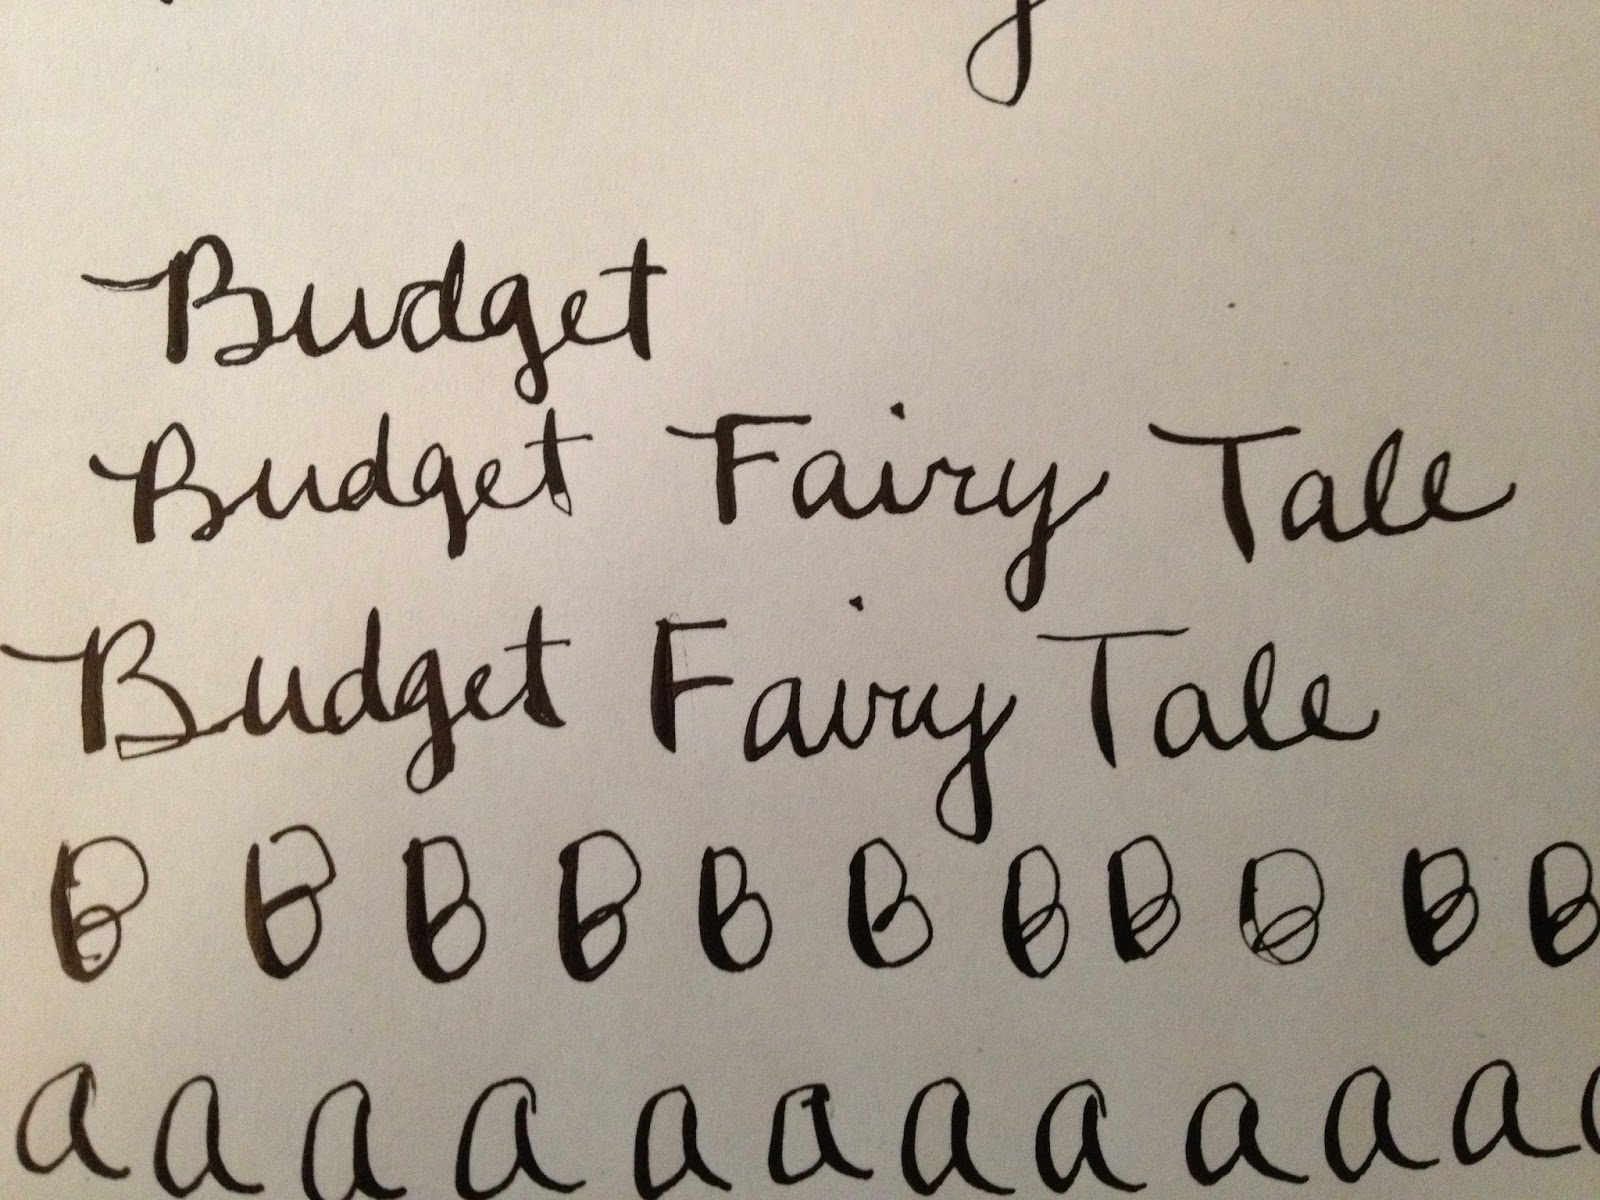 Budget
Budget Fairy Tale
Budget Fairy Tale
B B B B B B B B B B B
a a a a a a a a a a a